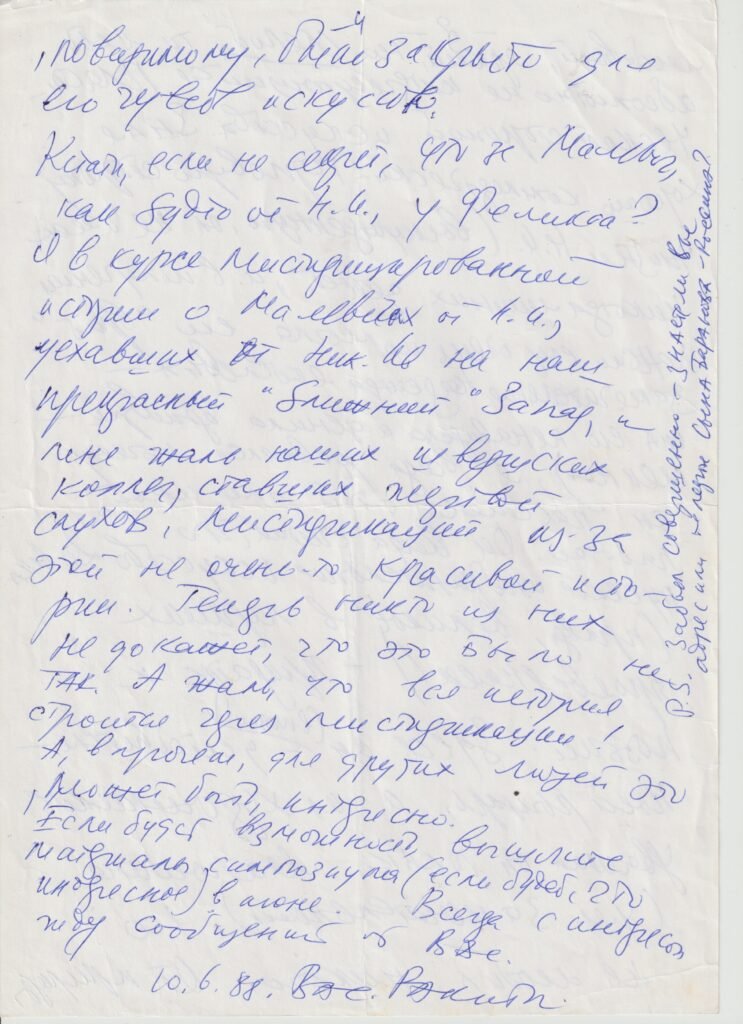 4
, повидимому, были закрыто для
его чувств искусств.
Кстати, если не секрет, что ж Малевич,
как будто от Н.И., у Феликса?
Я в курсе мистифицированной
истории о Малевичах от Н.И.,
уехавших от Ник. Ив на наш
прекрасный "ближний" Запад, и
мне жаль наших шведских
коллег, ставших жертвой
слухов, мистификаций из-за
этой не очень-то красивой исто-
рии. Теперь никто из них
не докажет, что это было не
так. А жаль, что вся история
строится через мистификации!
А, впрочем, для других людей это
, может быть, интересно.
Если будет возможность, вышлите
материалы симпозиума (если будет, что
интересное) в июне. Всегда с интересом
жду сообщений от Вас.
10.6.88. Вас. Ракитин.
P.S. Забыл совершенно – знаете ли Вы
адрес или телефон сына Баранова-Россине?